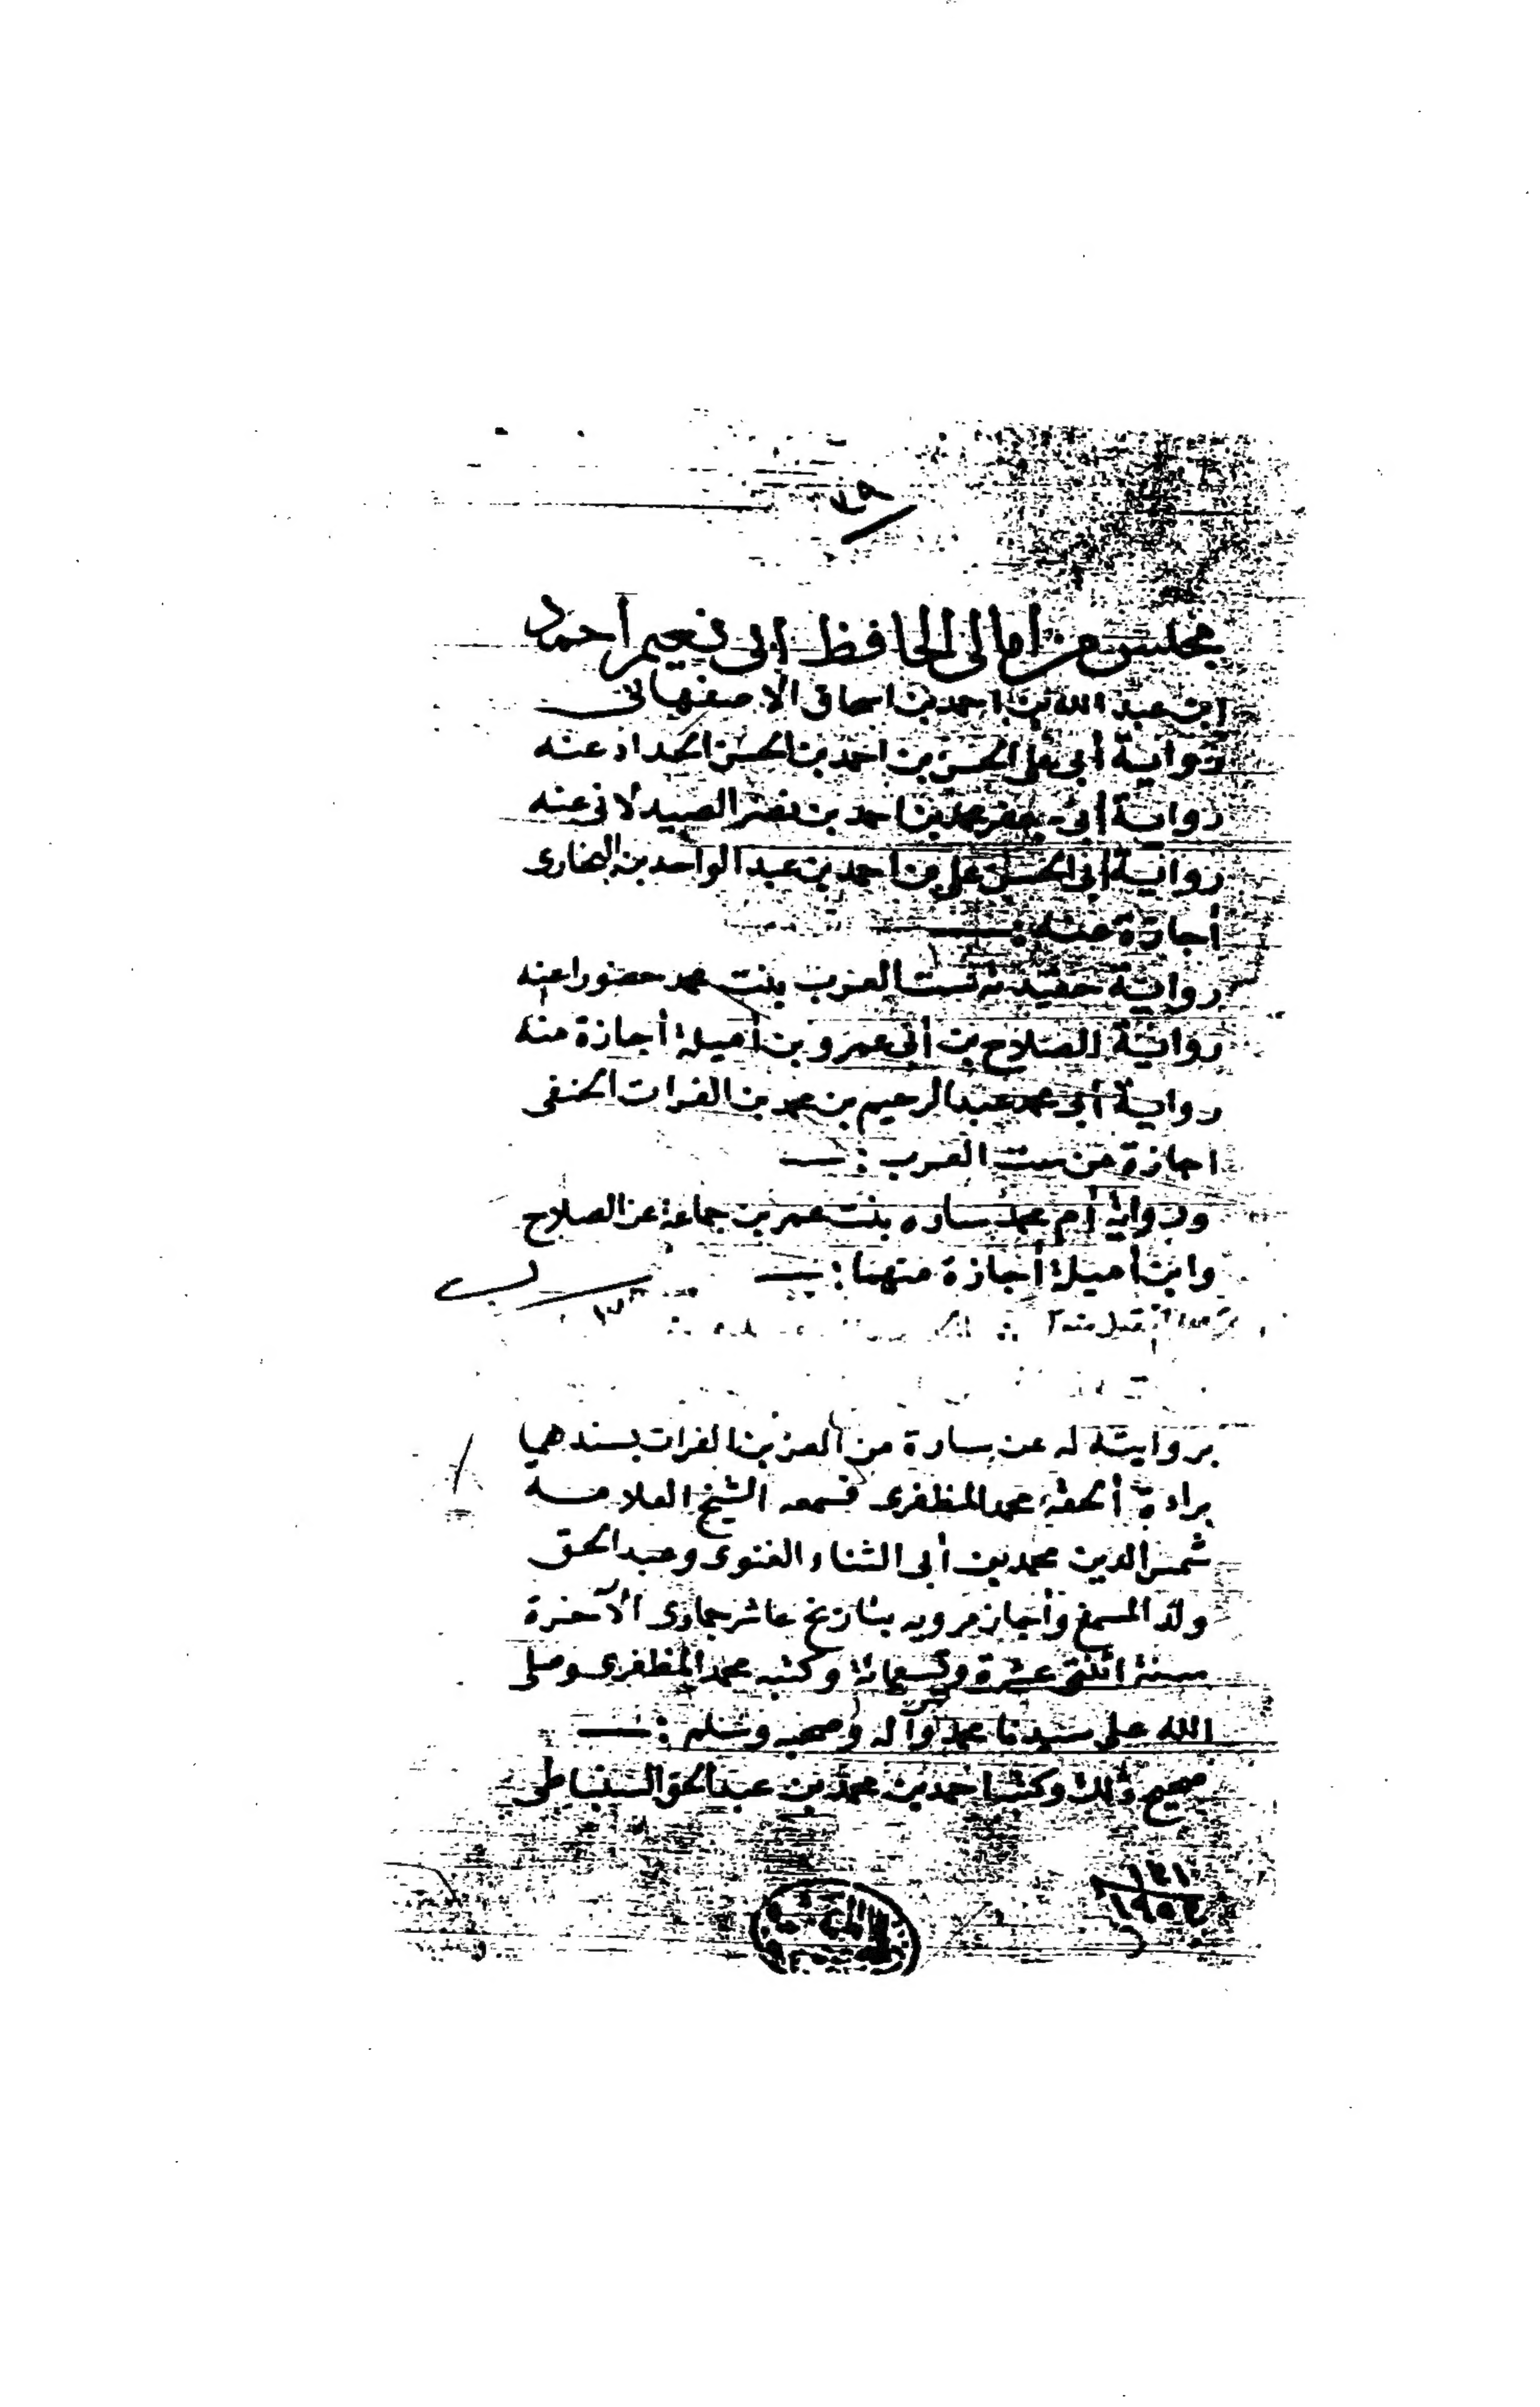 مجلس من أمالى الحافظ ابى نعيم أحمد
ابن عبد الله بن احمد بن اسحاق الاصفهانى
رواية أبى على الحسن بن احمد بن الحسن الحداد عنه
رواية أبى جعفر محمد بن احمد بن نصر الصيدلانى عنه
رواية ابى الحسن على بن احمد بن عبد الواحد بن البخارى
أجازة عنه :
رواية حفيدته ست العرب بنت محمد حضورا عنه
رواية الصلاح بن أبى عمر و بن أميلة أجازة منه
رواية أبى محمد عبد الرحيم بن محمد بن الفرات الحنفى
اجازة من ست العرب :
ورواية أم محمد ساره بنت عمر بن جماعة عن الصلاح
وابن أميلة أجازة منهما :
بروايته له عن سارة من العز بن الفرات بسندهما
محمد المظفرى فسمعه الشيخ العلامه
شمس الدين محمد بن أبى الثناء الغنوى وعبد الحق
ولد المسمع وأجاز مرويه بتاريخ عاشر جمادى الآخرة
سنة اثنتى عشرة وتسعمائة وكتبه محمد المظفرى وصلى
الله على سيدنا محمد وآله وصحبه وسلم :
صحيح ذلك وكتب احمد بن محمد بن عبد الحق السنباطى